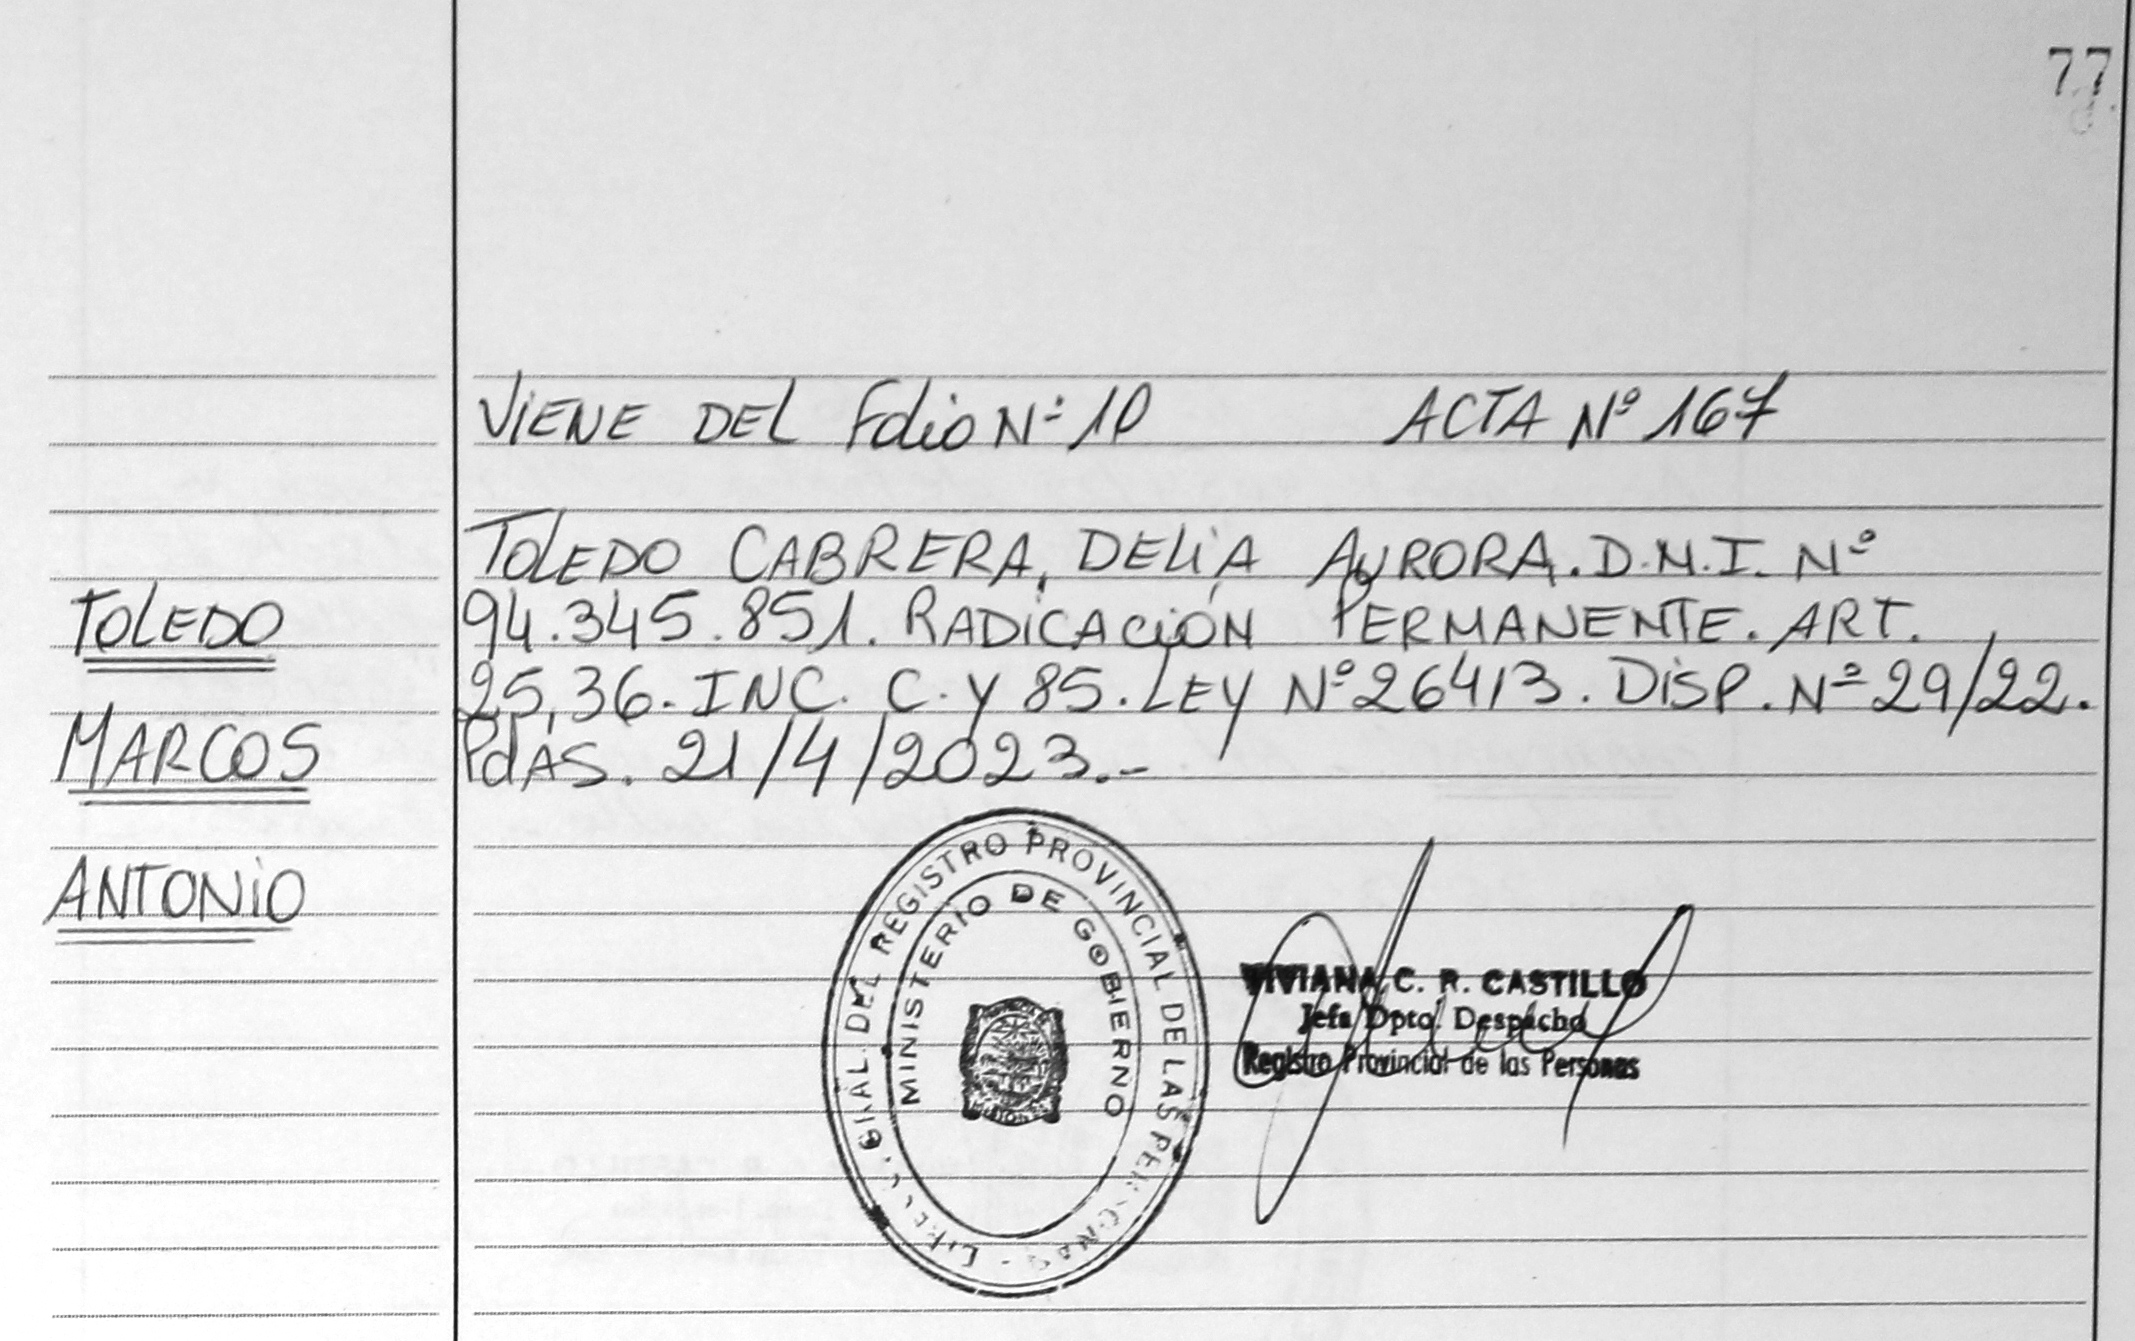 77
VIENE DEL Folio Nº 10 ACTA Nº 167
TOLEDO CABRERA, DELIA AURORA. D.N.I. Nº
94.345.851. RADICACIÓN PERMANENTE. ART.
25,36. INC. C. Y 85. LEY Nº 26413. DISP. Nº 29/22.
PdAS. 21/4/2023.-
TOLEDO
MARCOS
ANTONIO
DEL REGISTRO PROVINCIAL DE LAS PERSONAS
MINISTERIO DE GOBIERNO
VIVIANA C. R. CASTILLO
Jefa Dpto. Despacho
Registro Provincial de las Personas